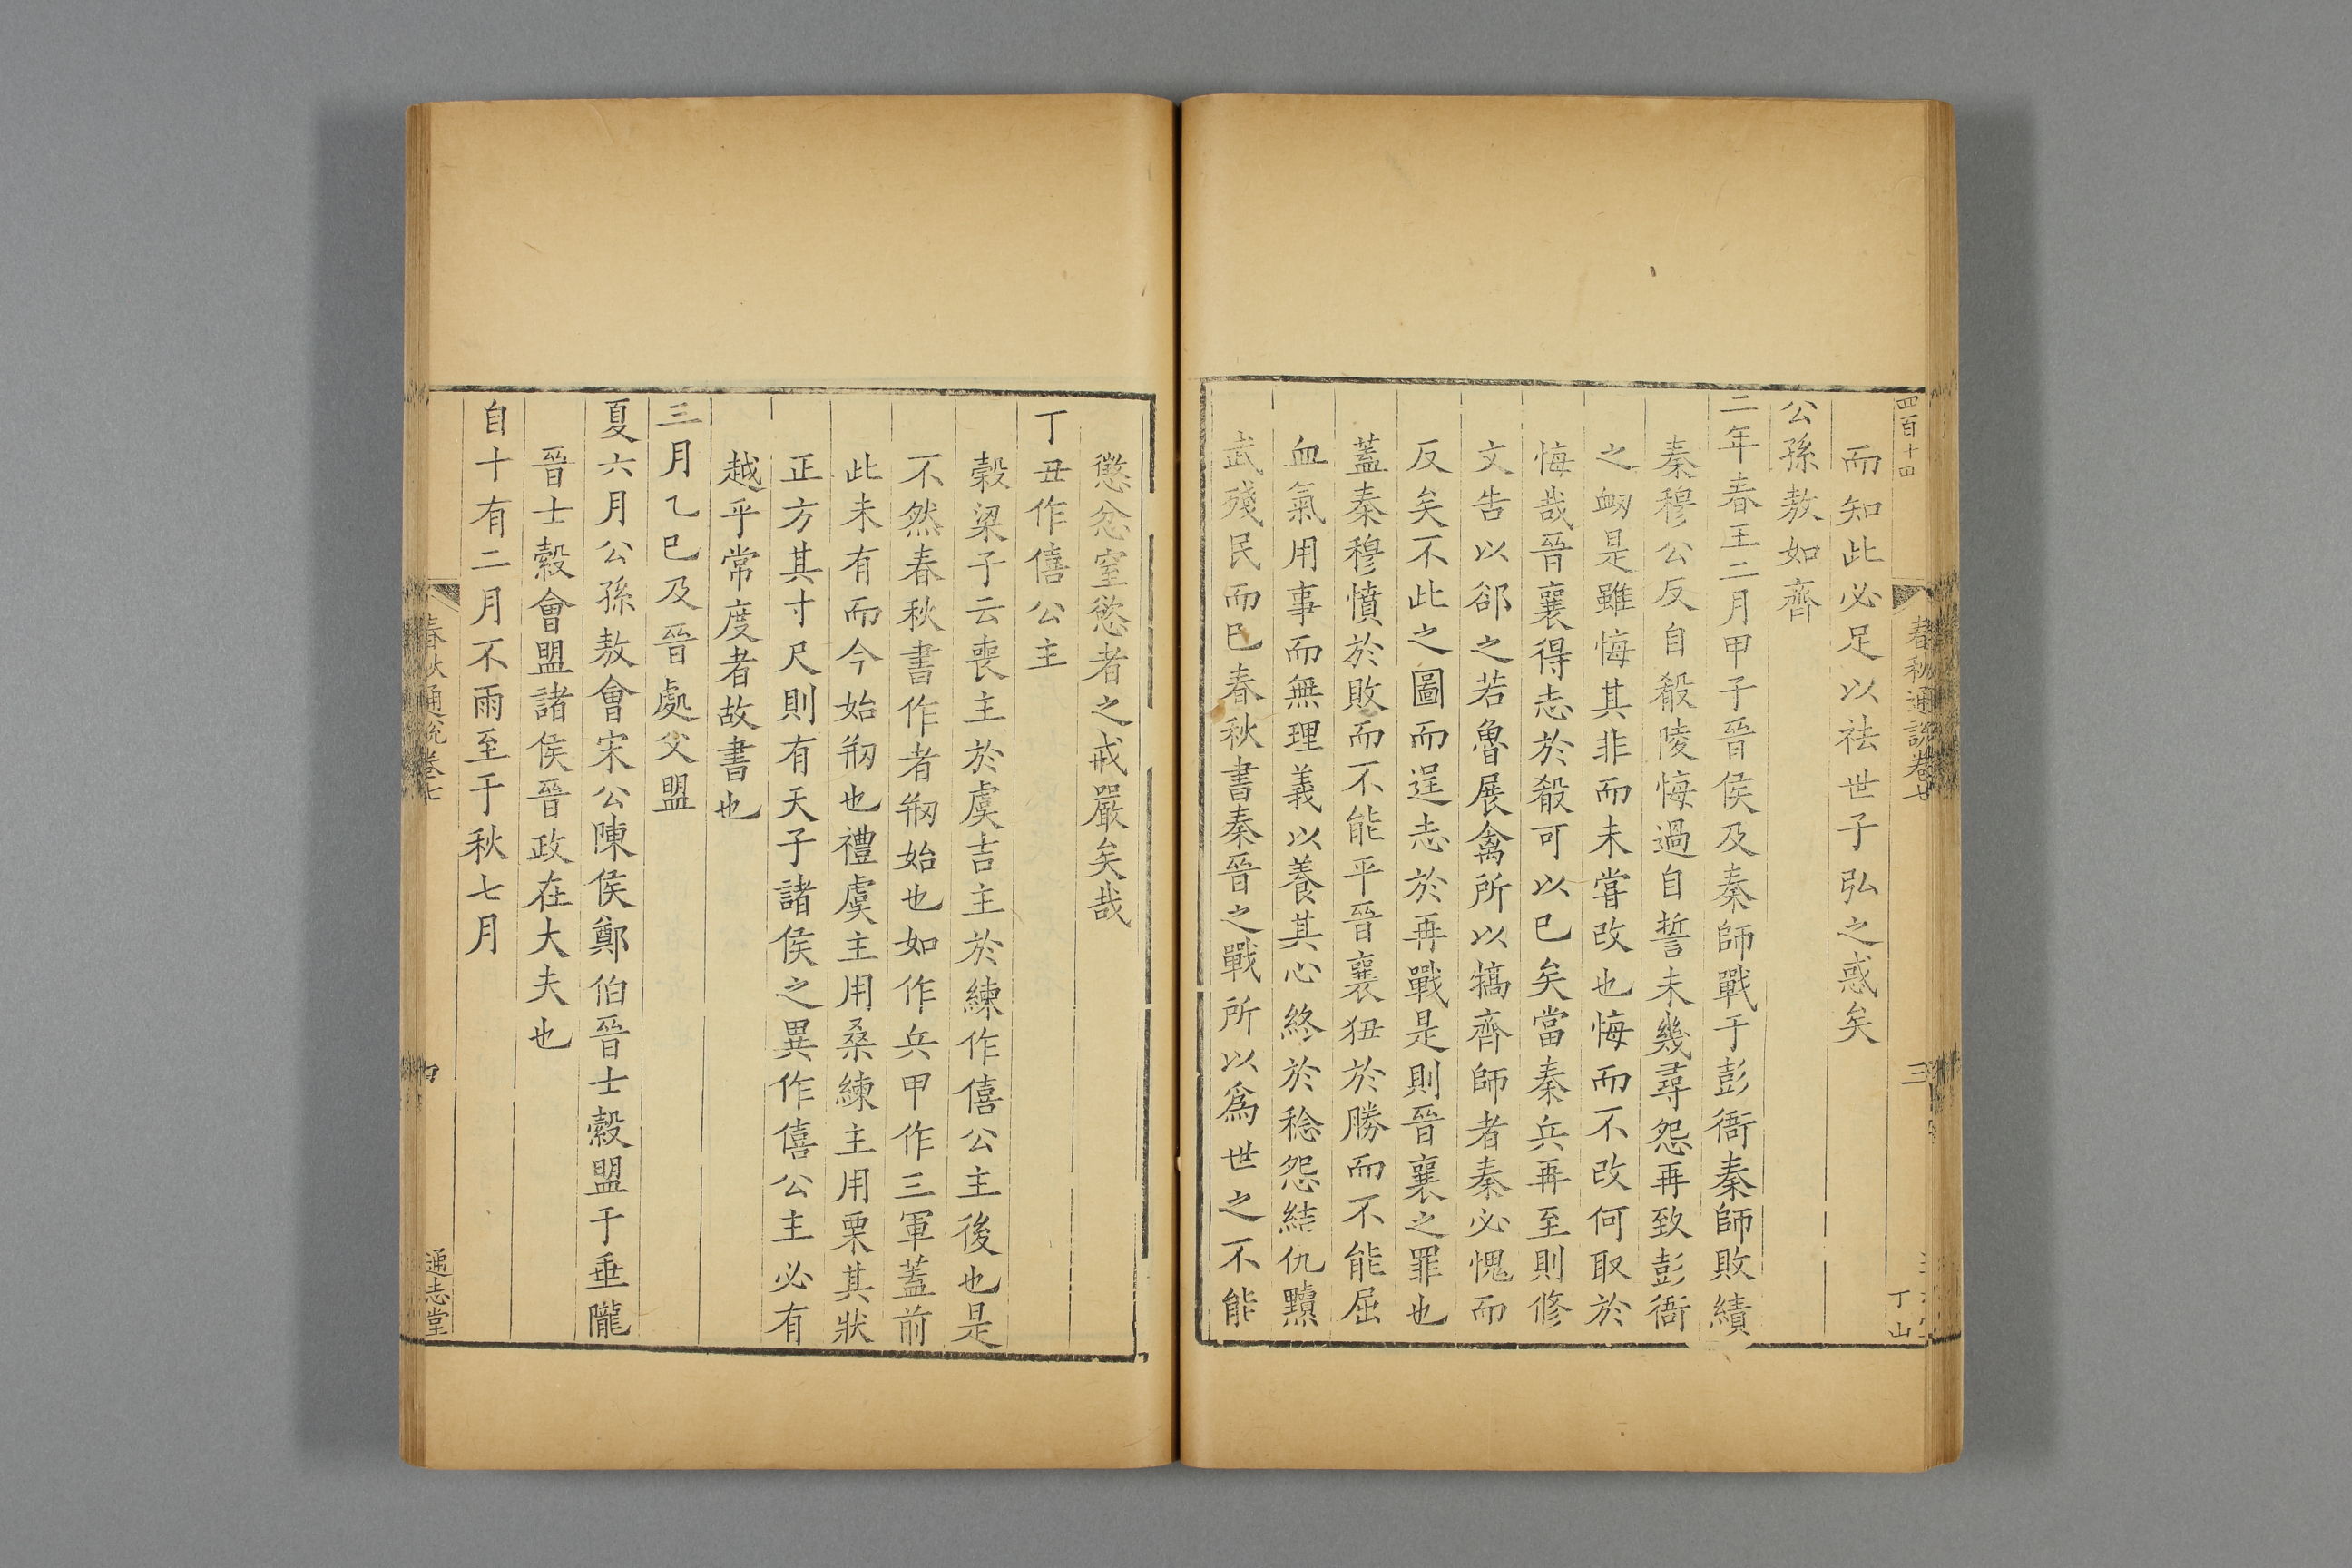 四百十四
春秋通說卷七
三
丁山
而知此必足以祛世子弘之惑矣
公孫敖如齊
二年春王二月甲子晉侯及秦師戰于彭衙秦師敗績
秦穆公反自殽陵悔過自誓未幾尋怨再致彭衙
之衂是雖悔其非而未甞改也悔而不改何取於
悔哉晉襄得志於殽可以已矣當秦兵再至則修
文告以郤之若魯展禽所以犒齊師者秦必愧而
反矣不此之圖而逞志於再戰是則晉襄之罪也
葢秦穆憤於敗而不能平晉襄狃於勝而不能屈
血氣用事而無理義以養其心終於稔怨結仇黷
武殘民而已春秋書秦晉之戰所以爲世之不能
懲忿窒慾者之戒嚴矣哉
丁丑作僖公主
榖梁子云喪主於虞吉主於練作僖公主後也是
不然春秋書作者剏始也如作兵甲作三軍葢前
此未有而今始剏也禮虞主用桑練主用栗其狀
正方其寸尺則有天子諸侯之異作僖公主必有
越乎常度者故書也
三月乙巳及晉處父盟
夏六月公孫敖會宋公陳侯鄭伯晉士縠盟于垂隴
晉士縠會盟諸侯晉政在大夫也
自十有二月不雨至于秋七月
春秋通說卷七
四
通志堂